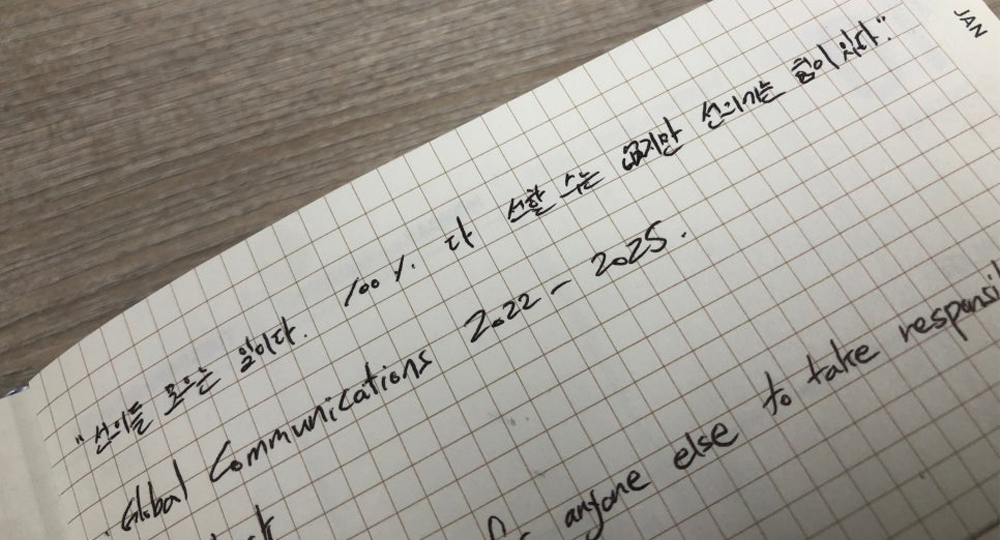 JAN
"선의를 모으는 일이다. 100%. 다 선할 수는 없지만 선의기는 힘이 있다"
Global Communications 2022 - 2025.
anyone else to take